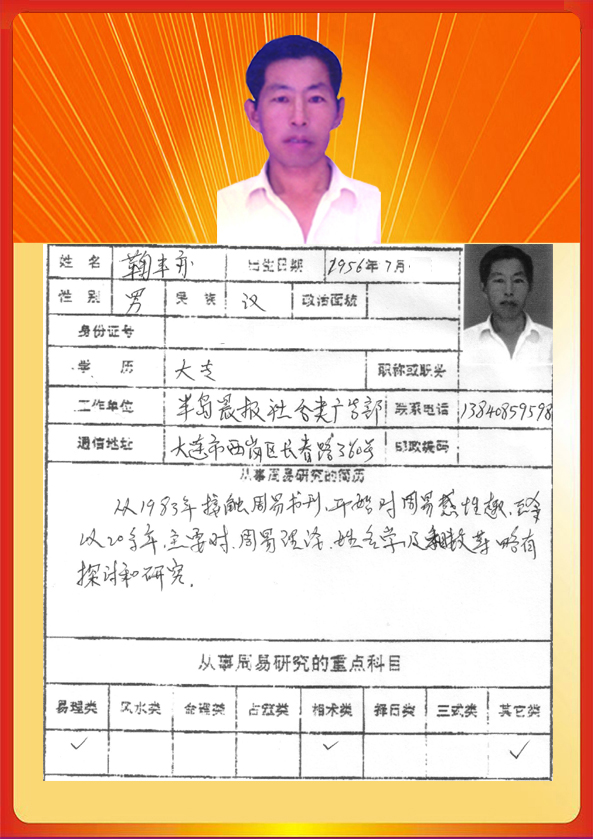 姓名 鞠丰亦 出生日期 1956年7月
性别 男 民族 汉 政治面貌
身份证号
学历 大专 职称或职务
工作单位 半岛晨报社分类广告部 联系电话 13840859598
通信地址 大连市西岗区长春路360号 邮政编码
从事周易研究的简历
从1983年接触周易书刊,开始对周易感性趣,至今
以20多年,主要对、周易理论、姓名学及 等略有
探讨和研究.
从事周易研究的重点科目
易理类 风水类 命理类 占筮类 相术类 择日类 三式类 其它类
✓ ✓ ✓